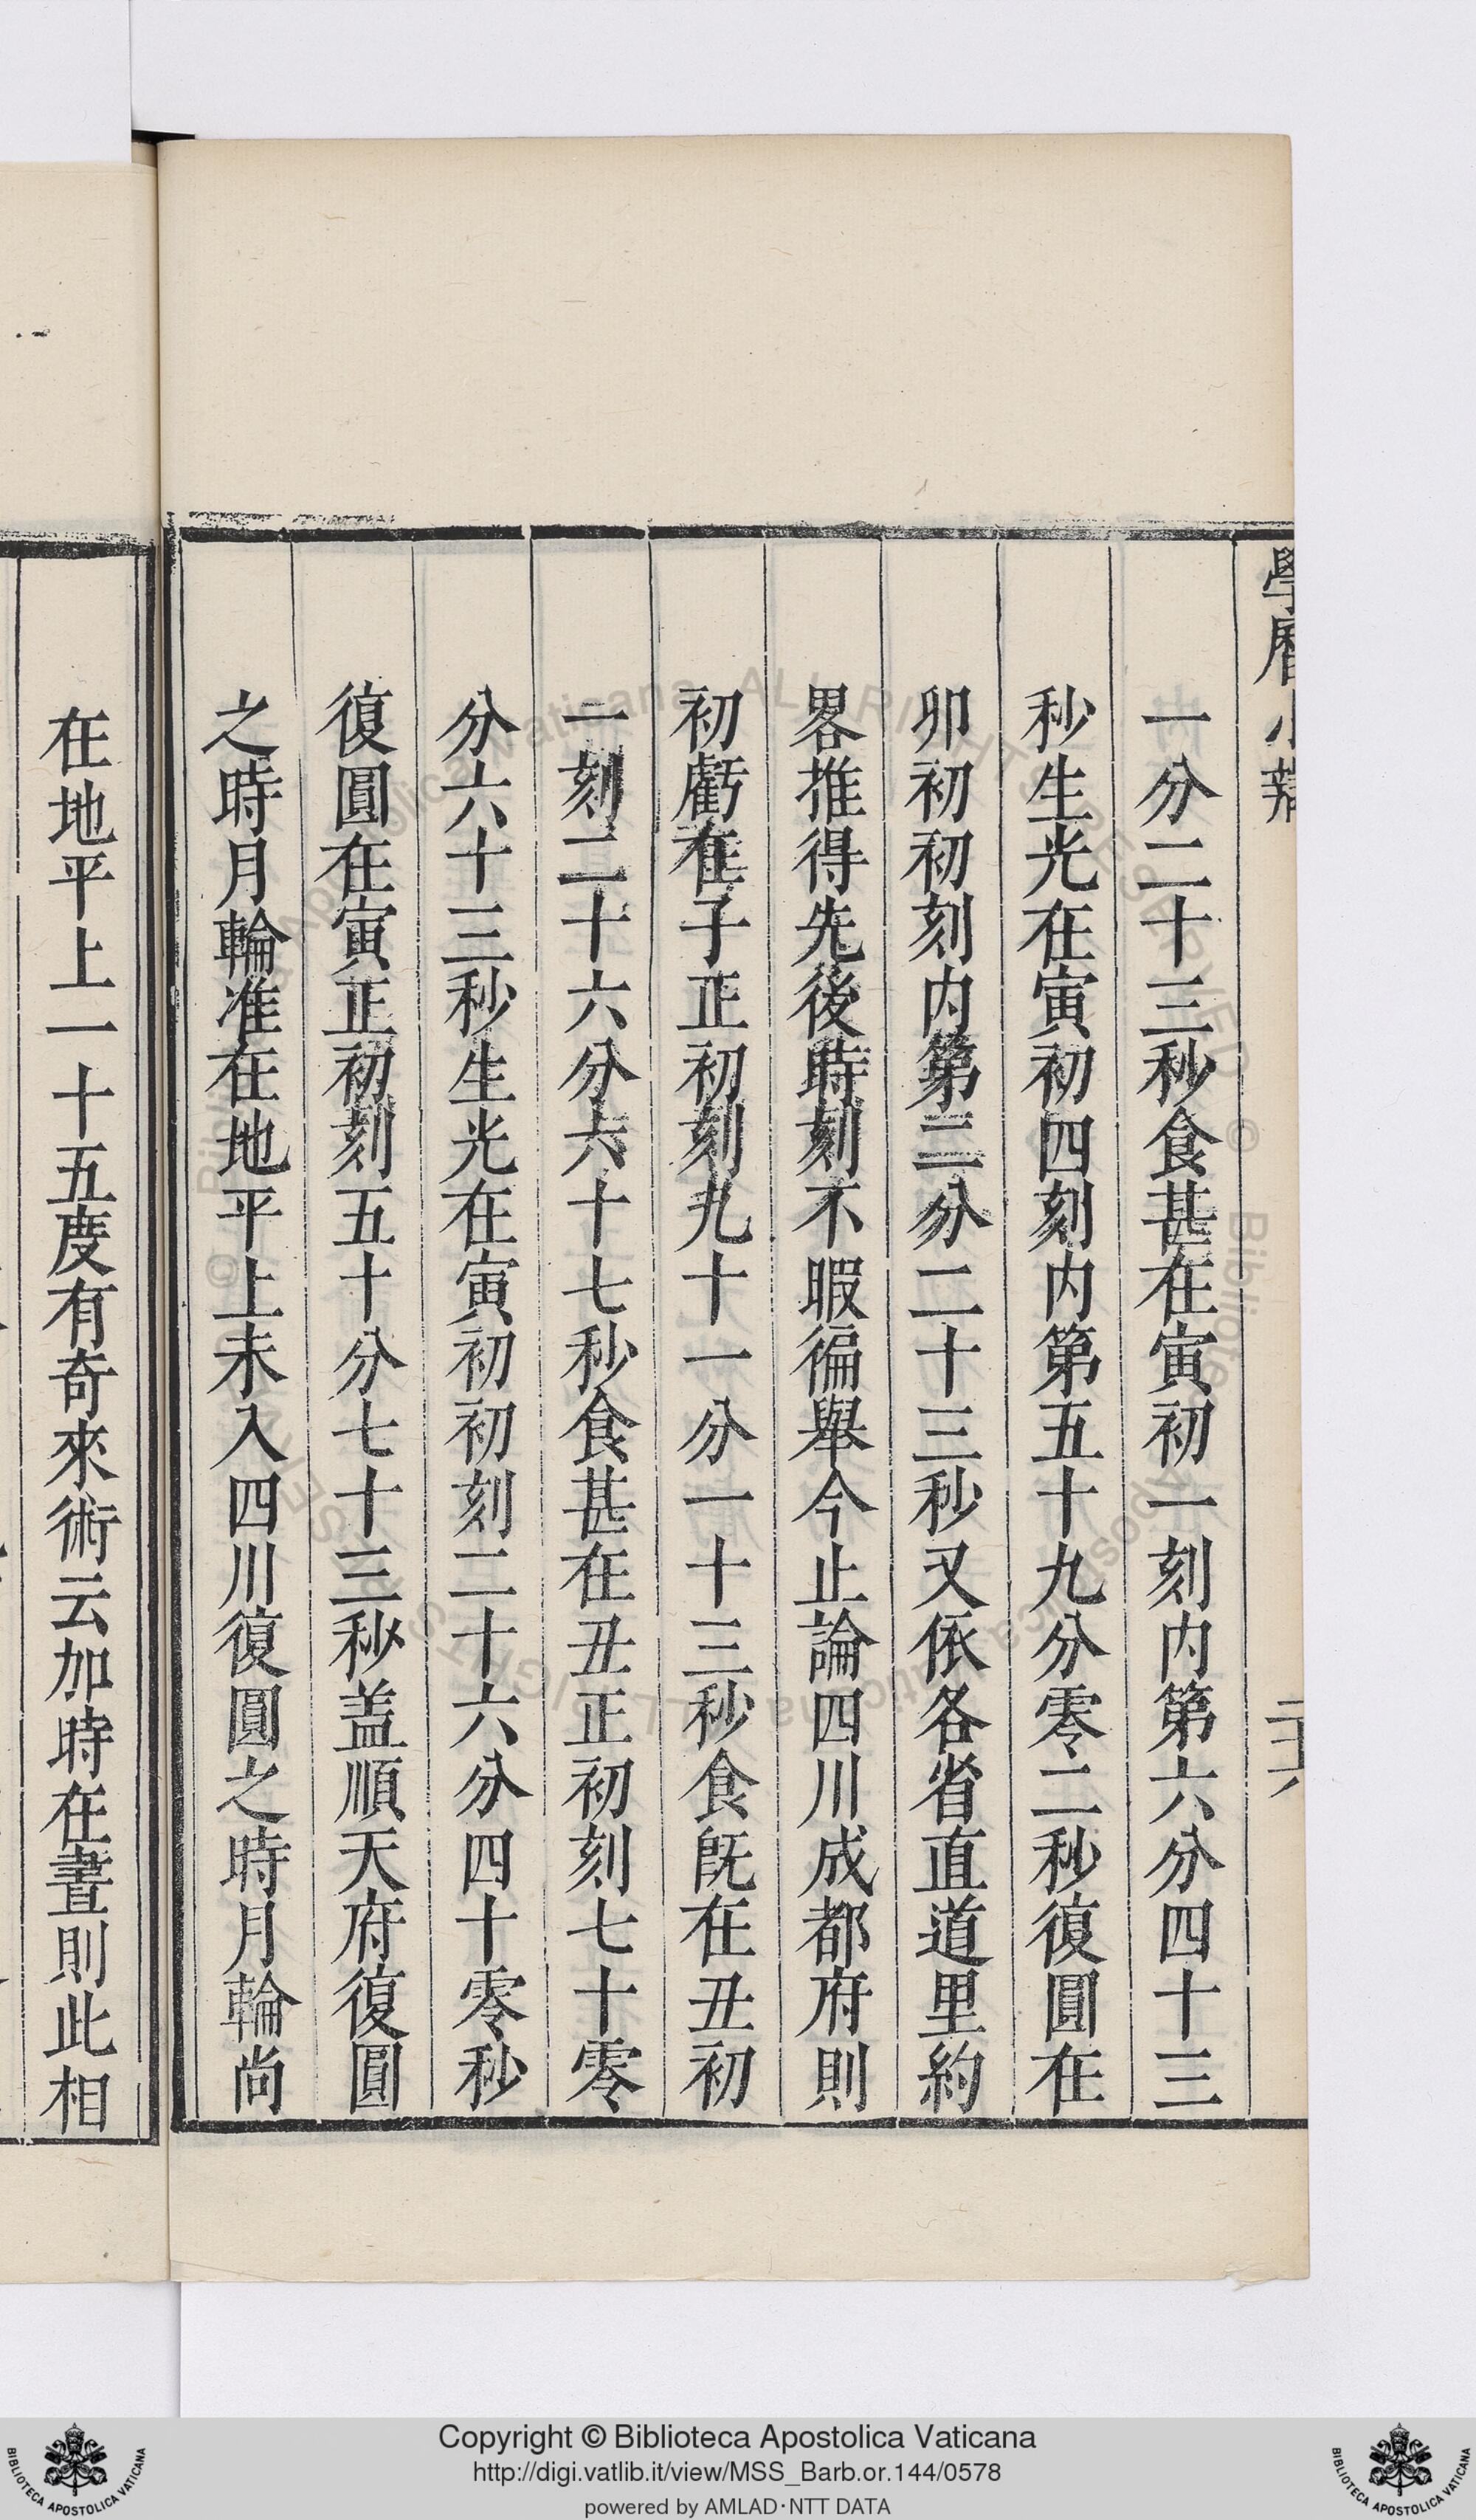 學曆小辯
二十六
一分二十三秒食甚在寅初一刻内第六分四十三
秒生光在寅初四刻内第五十九分零二秒復圓在
卯初初刻内第三分二十三秒又依各省直道里約
畧推得先後時刻不暇徧舉今止論四川成都府則
初虧在子正初刻九十一分一十三秒食旣在丑初
一刻二十六分六十七秒食甚在丑正初刻七十零
分六十三秒生光在寅初初刻二十六分四十零秒
復圓在寅正初刻五十分七十三秒盖順天府復圓
之時月輪准在地平上未入四川復圓之時月輪尚
在地平上一十五度有奇來術云加時在晝則此相
Copyright © Biblioteca Apostolica Vaticana
http://digi.vatlib.it/view/MSS_Barb.or.144/0578
powered by AMLAD·NTT DATA
BIBLIOTECA APOSTOLICA VATICANA
BIBLIOTECA APOSTOLICA VATICANA